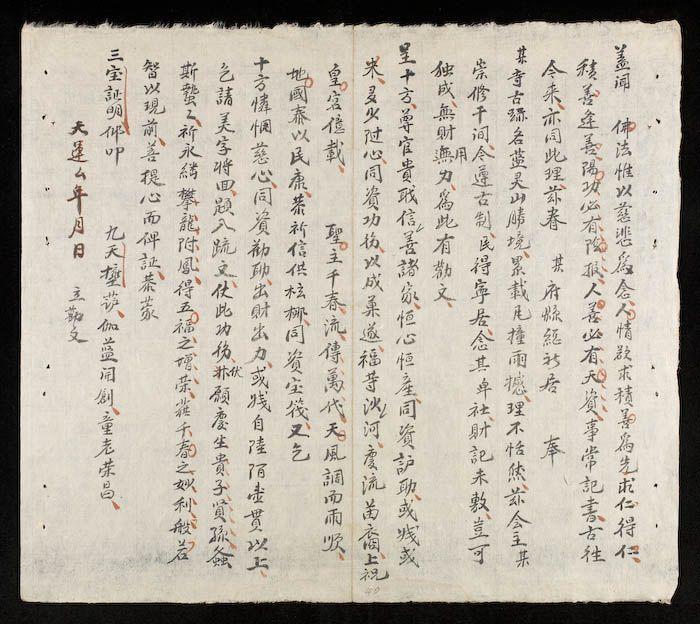 蓋闻 佛法惟以慈悲爲念人情欲求積善爲先求仁得仁
積善逢善陽功必有陰报人善必有天資事常記書古往
今來亦同此理兹眷 某府縣総社居 奉
某寺古跡名藍灵山勝境累載瓦撞雨撼理不恬然兹会主某
崇修千间今遵古制民得寧居念其卑社財記未敷豈可
独成無財無用力爲此有勸文
呈十方尊官貴職信善諸家恒心恒産同資訪助或或
米多少随心同資功德以成果遂福等沙河慶流苗裔上祝
皇宮億載 聖主千春流傳萬代天風調而雨順
地國泰以民康恭祈信供桉梛同資宝筏又乞
十方憐悯慈心同資勸助出財出力或自陸陌壹貫以上
乞請美字将回題入疏文仗此功德伏願慶生貴子賢孫螽
斯蟄之祈永綿攀龍附鳳得五福之增荣莊千春之妙利般若
智以現前菩提心而碑証恭蒙
三宝証明佛叩 九天 萨伽藍開創童老荣昌
天運厶年月日 立勸文